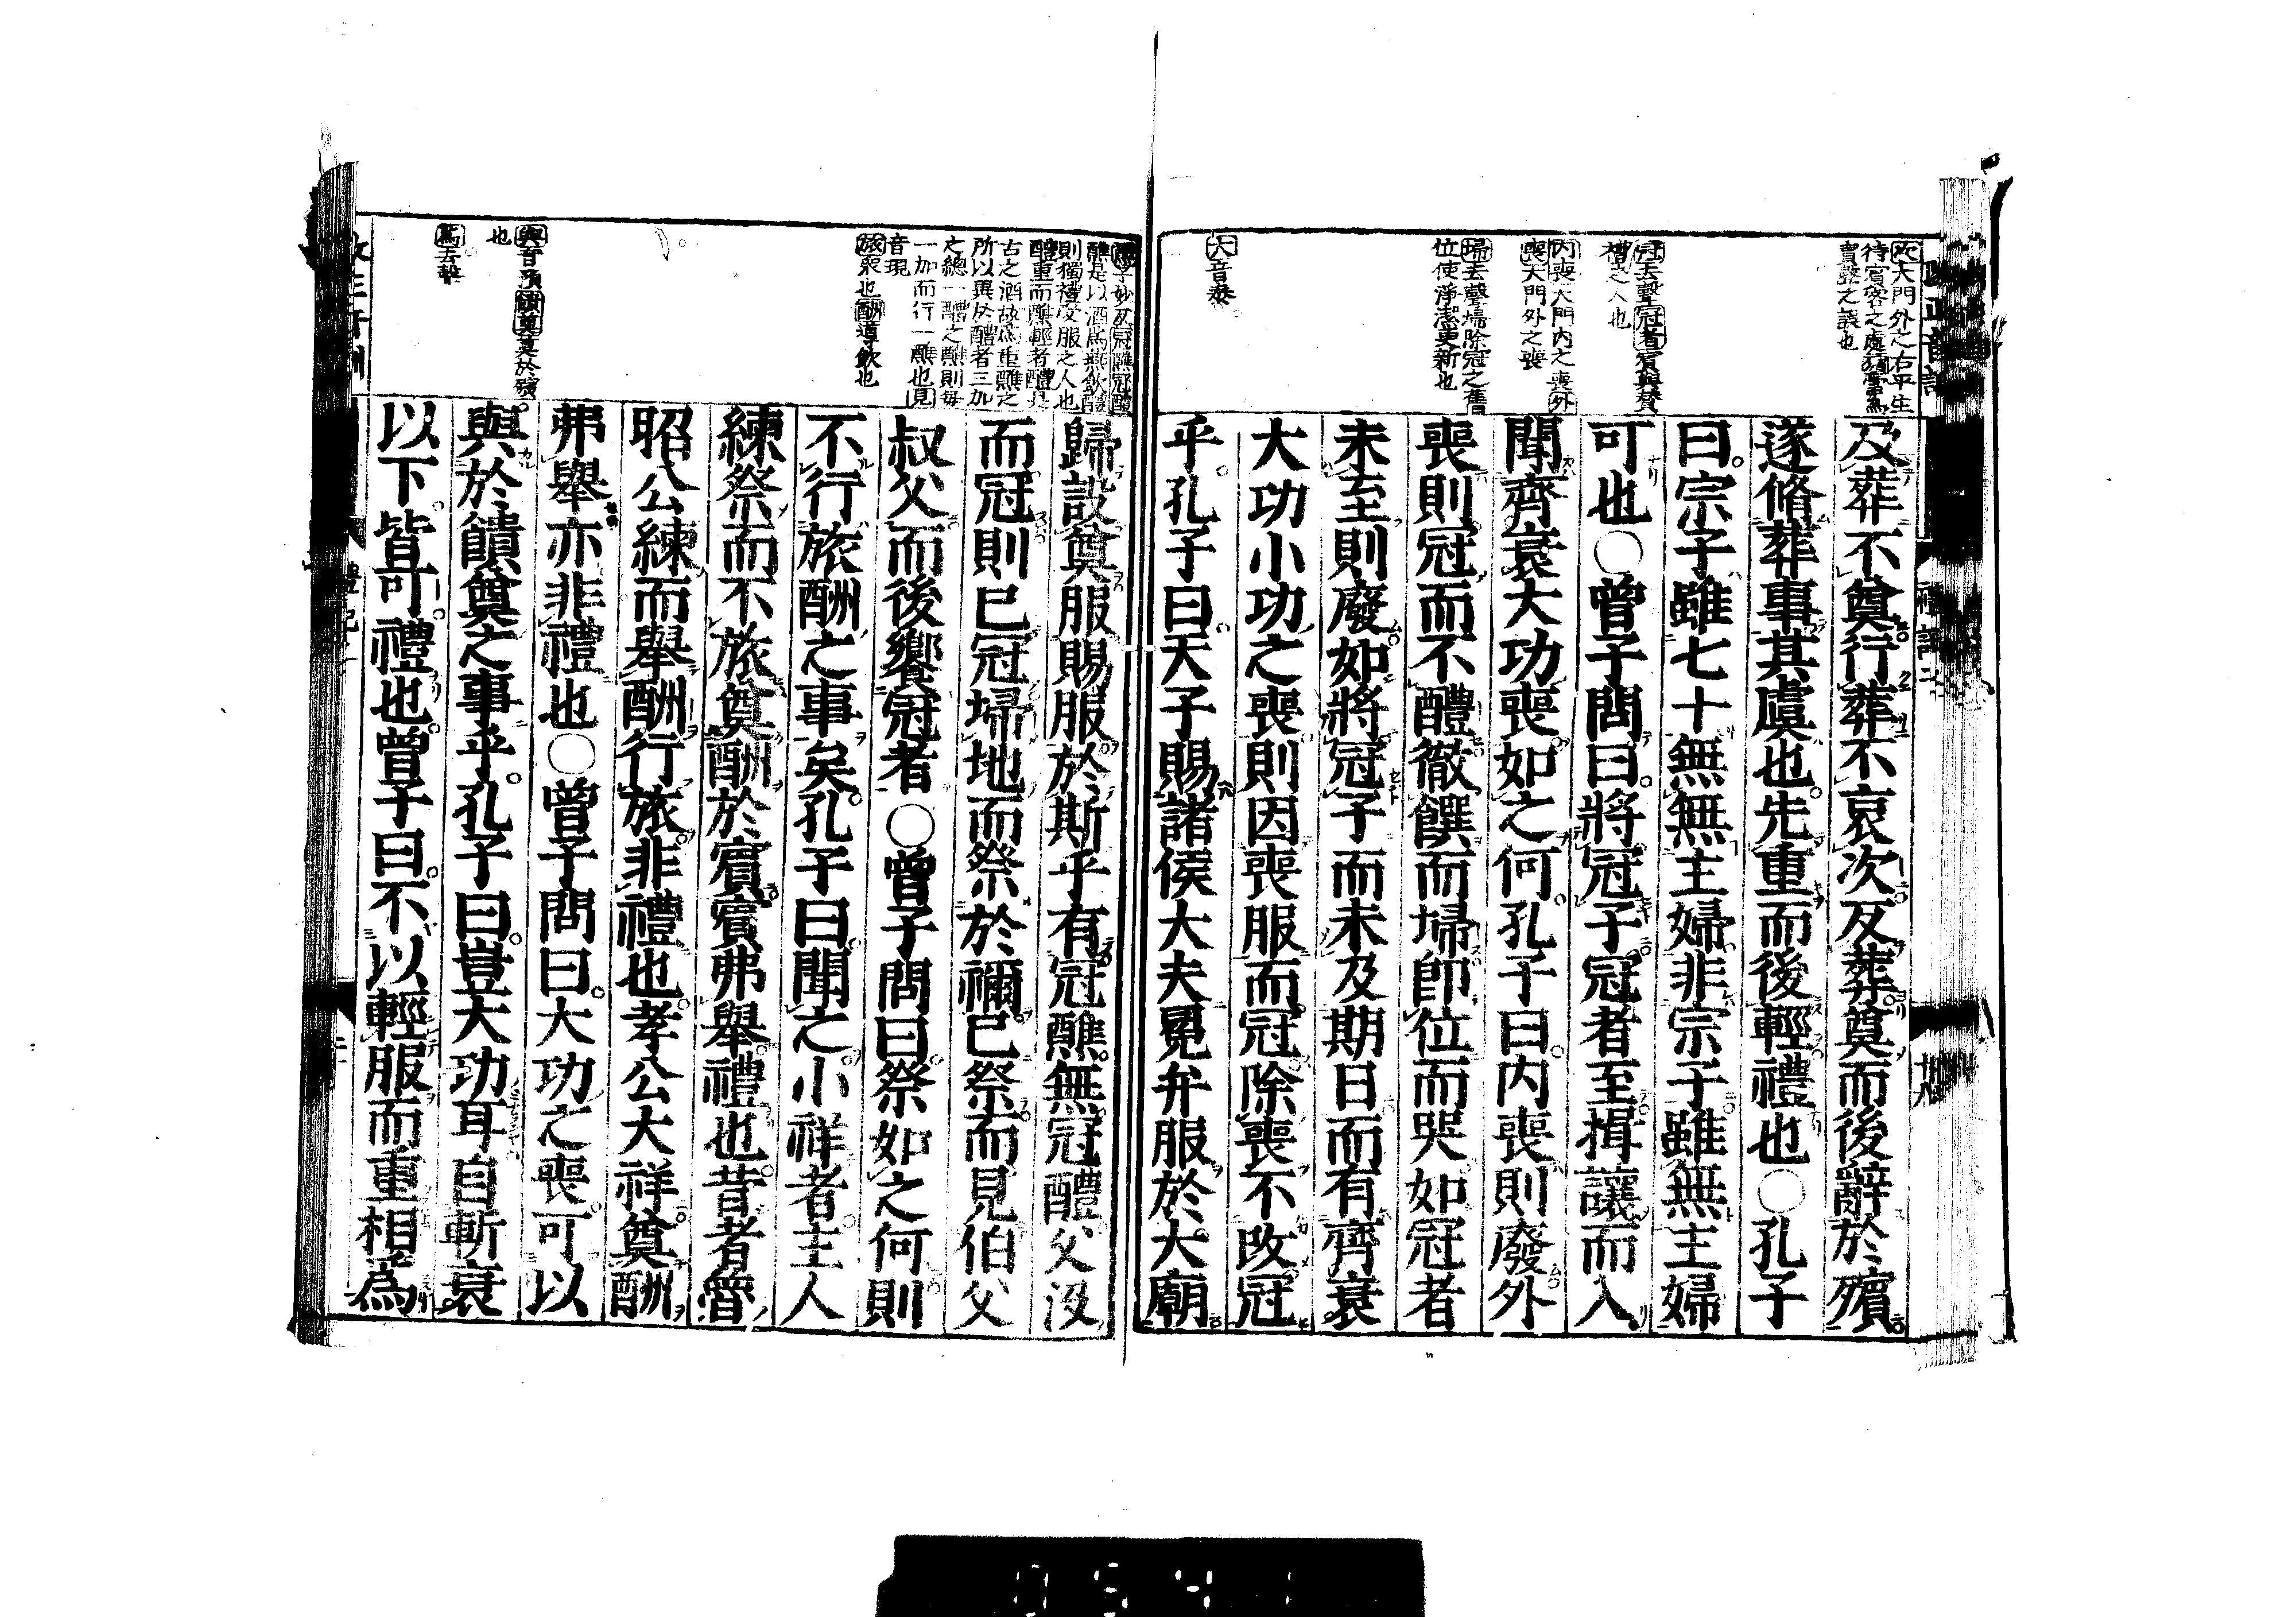 及葬不奠行葬不哀次反葬奠而後辭於殯
遂脩葬事其虞也先重而後輕禮也○孔子
曰宗子雖七十無無主婦非宗子雖無主婦
可也○曾子問曰將冠子冠者至揖讓而入
聞齊衰大功喪如之何孔子曰內喪則廢外
喪則冠而不醴徹饌而埽卽位而哭如冠者
未至則廢如將冠子而未及期日而有齊衰
大功小功之喪則因喪服而冠除喪不改冠
乎孔子曰天子賜諸侯大夫冕弁服於大廟
歸設奠服賜服於斯乎有冠醮無冠醴父沒
而冠則已冠埽地而祭於禰已祭而見伯父
叔父而後饗冠者○曾子問曰祭如之何則
不行旅酬之事矣孔子曰聞之小祥者主人
練祭而不旅奠酬於賓賓弗舉禮也昔者魯
昭公練而舉酬行旅非禮也孝公大祥奠酬
弗舉亦非禮也○曾子問曰大功之喪可以
與於饋奠之事乎孔子曰豈大功耳自斬衰
以下皆可禮也曾子曰不以輕服而重相爲
次大門外之右平生
待賓客之處
賓聲之誤也
冠去聲冠者賓與贊
禮之人也
內喪大門內之喪外
喪大門外之喪
埽去聲埽除冠之舊
位使淨潔更新也
大音泰
醮是以酒爲燕飮醴
則獨禮受服之人也
醴重而醮輕者醴是
古之酒故爲重醮之
所以異於醴者三加
之總一醴之醮則每
一加而行一醮也見
音現
旅衆也酬導飮也
與音預饋奠奠於殯
也
爲去聲